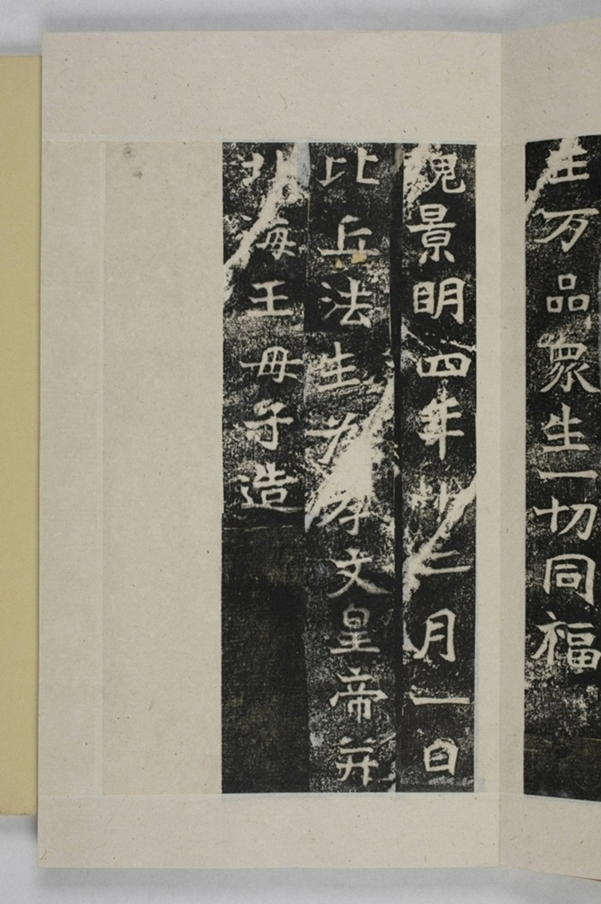 万品衆生一切同福
魏景明四年十二月一日
比丘法生為孝文皇帝并
北海王母子造